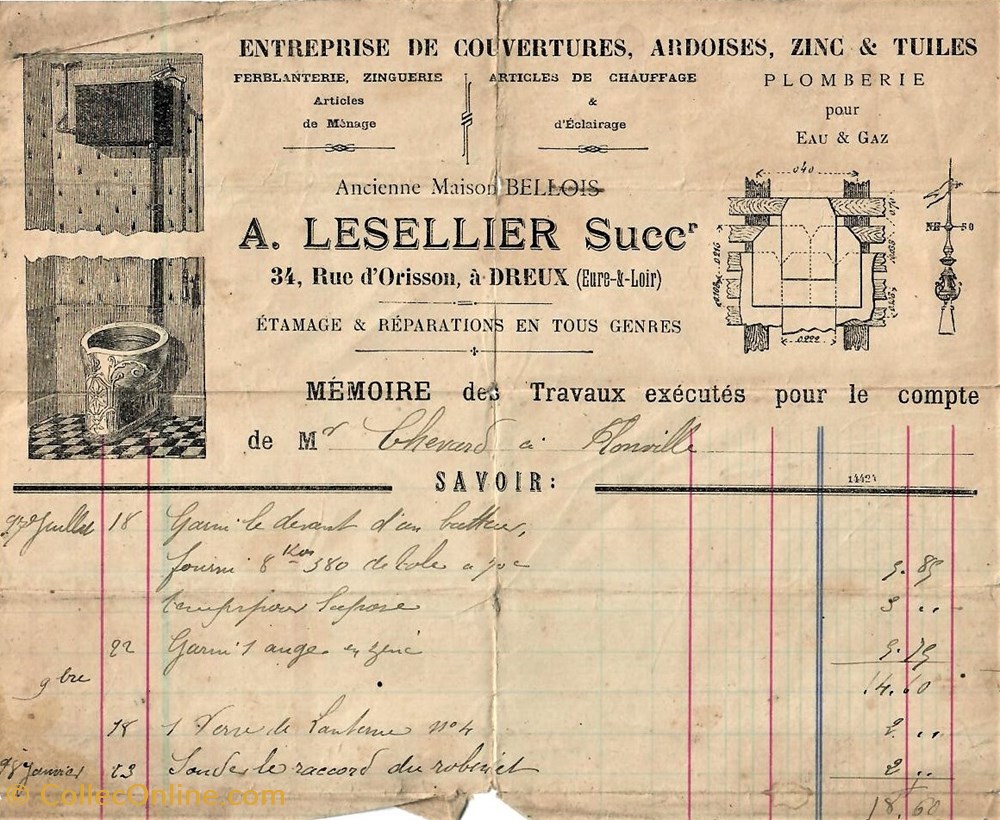 ENTREPRISE DE COUVERTURES, ARDOISES, ZINC & TUILES
FERBLANTERIE, ZINGUERIE
Articles
de Ménage
ARTICLES DE CHAUFFAGE
&
d'Éclairage
PLOMBERIE
pour
EAU & GAZ
Ancienne Maison BELLOIS
A. LESELLIER Succr
34, Rue d'Orisson, à DREUX (Eure-&-Loir)
ÉTAMAGE & RÉPARATIONS EN TOUS GENRES
040
0.222
MÉMOIRE des Travaux exécutés pour le compte
de Mr Chevard à
SAVOIR:
14424
97 Juillet 18 Garni le devant d'un batteur,
fourni 8 Kos 380 de tole a 70c 5.85
temps pour la pose 3 ..
22 Garni 1 auge en zinc 5.75
14.60
9bre
18 1 Verre de Lanterne no 4 2 ..
98 Janvier 23 Souder le raccord du robinet 2 ..
18.60
© CollecOnline.com